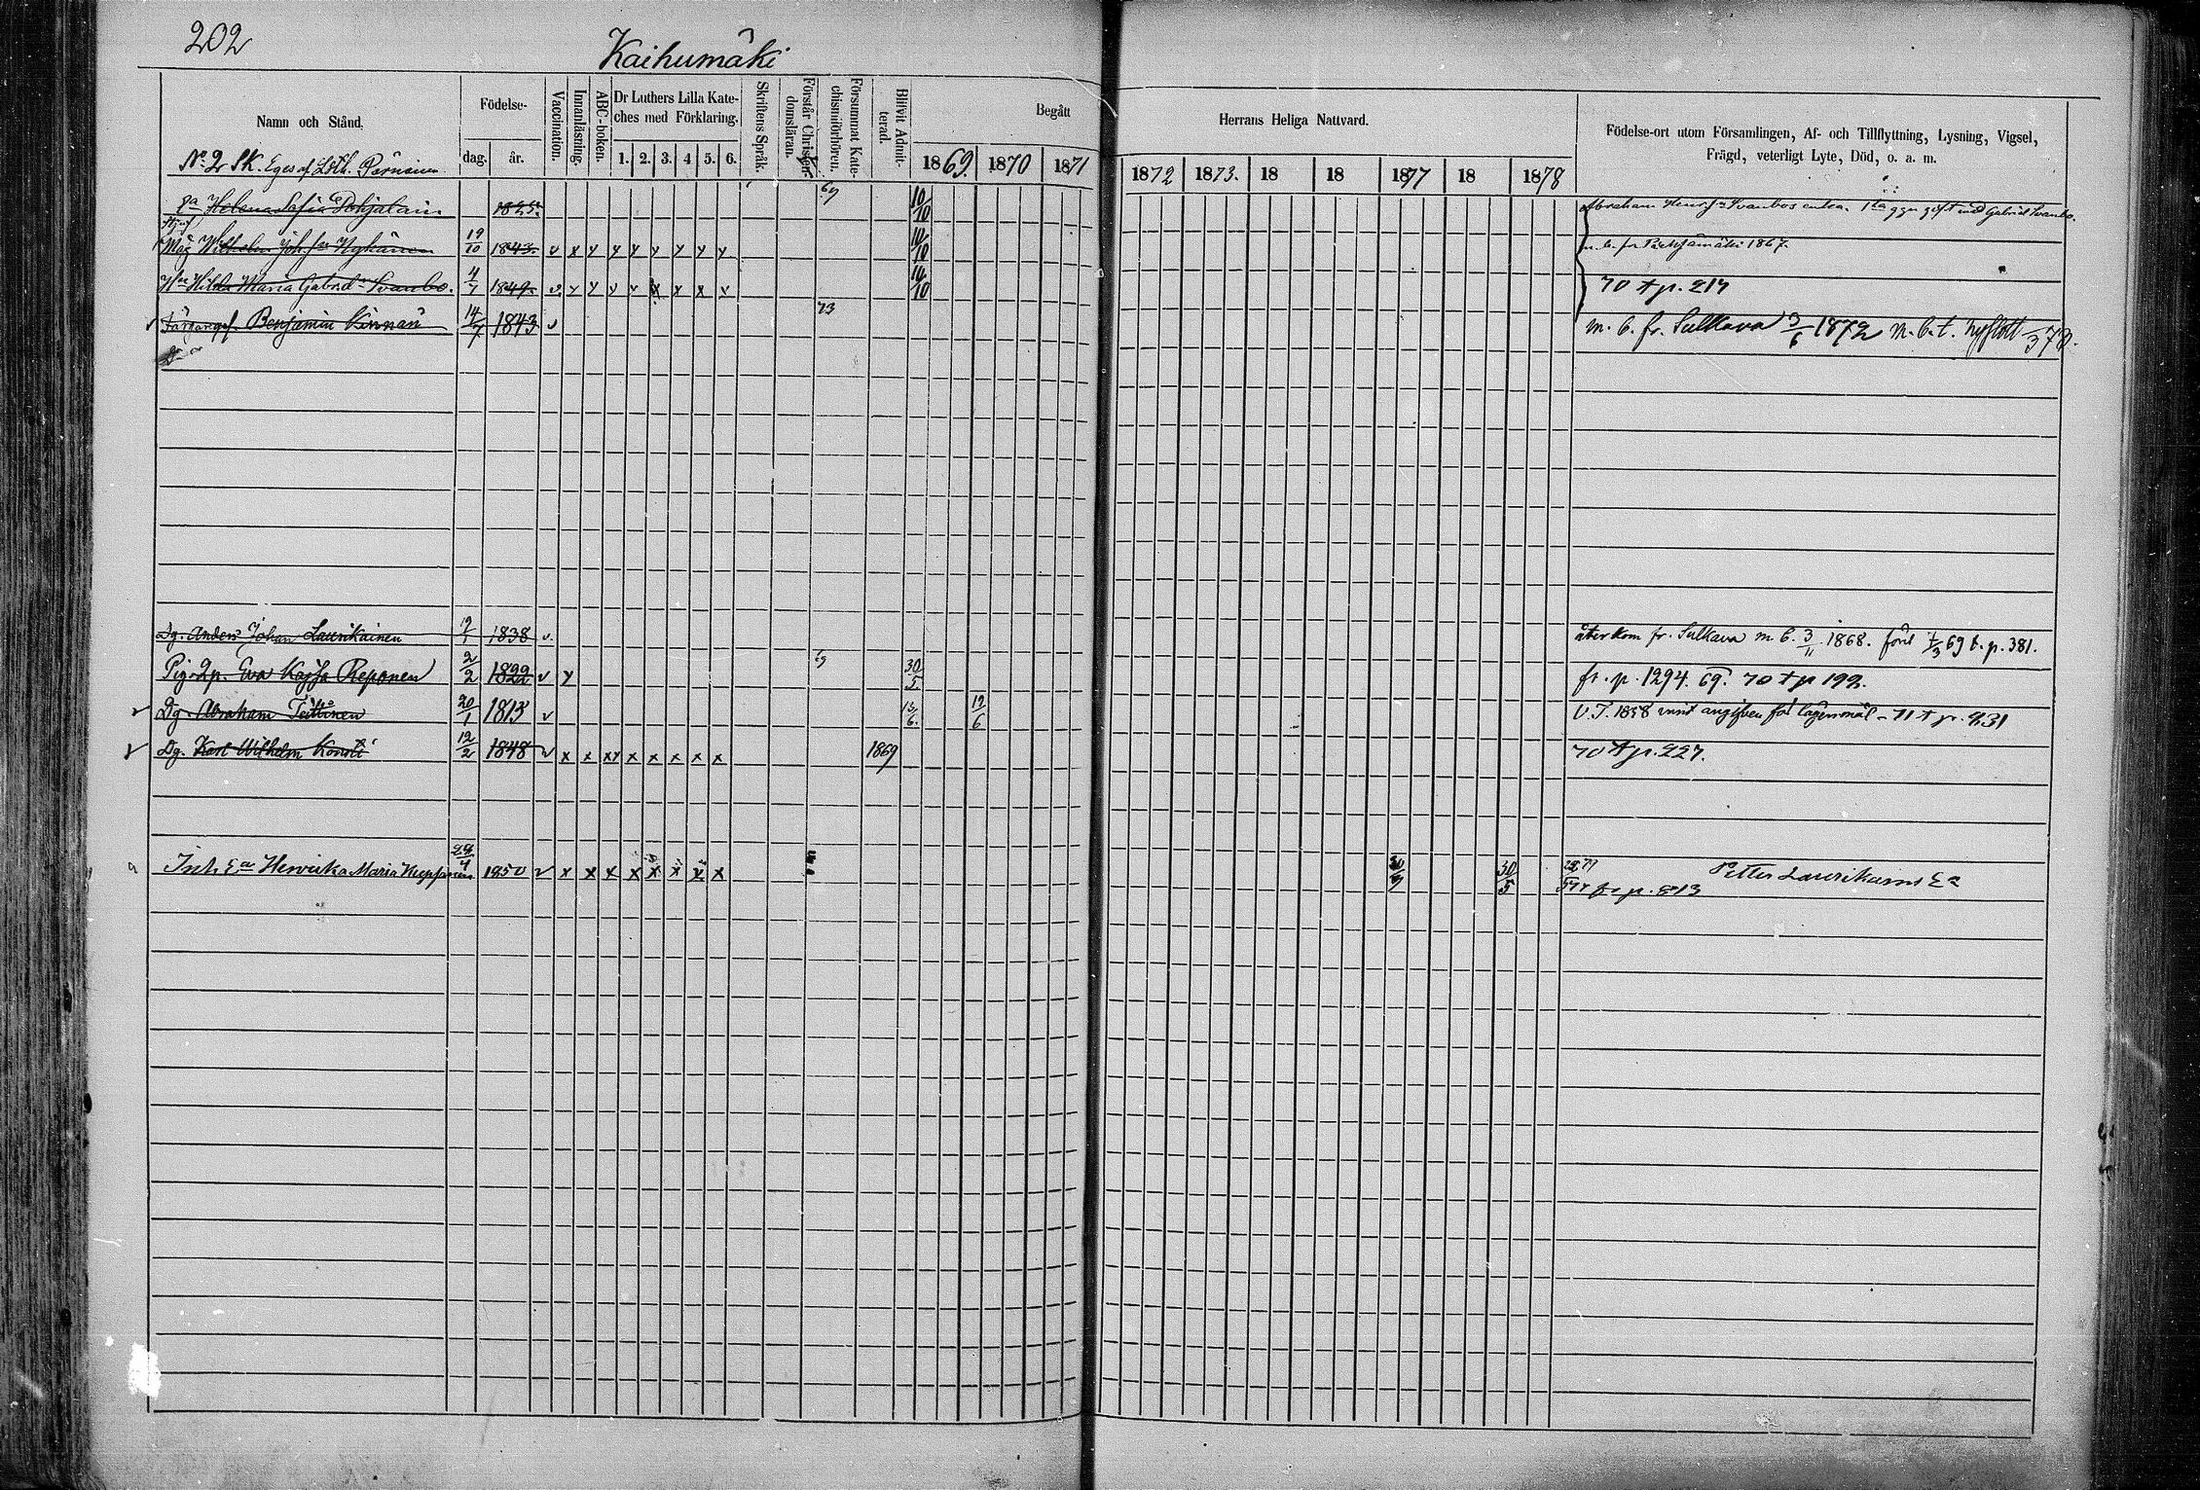 202
Kaihumäki
Namn och Stånd.
Födelse-
dag.
år.
Vaccination.
Innanläsning.
ABC-boken.
Dr Luthers Lilla Kate-
ches med Förklaring.
1. 2. 3. 4 5. 6.
Skriftens Språk.
Förstår Christen-
domsläran.
Försummat Kate-
chismiförhören.
Blifvit Admit-
terad.
Begått
Herrans Heliga Nattvard.
1869. 1870 1871
1872 1873. 18 18 1877 18 1878
Födelse-ort utom Församlingen, Af- och Tillflyttning, Lysning, Vigsel,
Frägd, veterligt Lyte, Död, o. a. m.
No. 2 SK. Eges af
Helena Sofia Pohjalain 1825. 69 10/10 Abraham Svanbos enka. 1sta ggn gift med Gabriel Svanbo.
Måg Wilhelm Joh. Nykänen 19/10 1843. v x y y y y y y y 10/10 m. b. fr Pieksämäki 1867.
Hu Hilda Maria Gabr.dr Svanbo. 4/7 1849. v. y y v v x x x v 10/10 70 t p. 217
Benjamin Kinnan 14/7 1843 v 73 m. b. fr. Sulkava 3/6 1872 m. b. t. Nyslott
Dg. Anders Johan Laurikainen 19/1 1838 v. återkom fr. Sulkava m. b. 3/11 1868. 69 t. p. 381.
Eva Kajsa Reponen 2/2 1822 v y 69 30/5 fr. p. 1294. 69. 70 t p 192.
Dg. Abraham Teittinen 20/1 1813 v 13/6. 12/6 1858 angifven för lägersmål - 71 t p. 931
Dg. Karl Wilhelm 12/2 1848 v x x xy x x x x x 1869 70 t p. 227.
Inh. Ea Henrika Maria 1850 v x x x x x x v x 30/5 fr p. 813 Petter Laurikains Ea